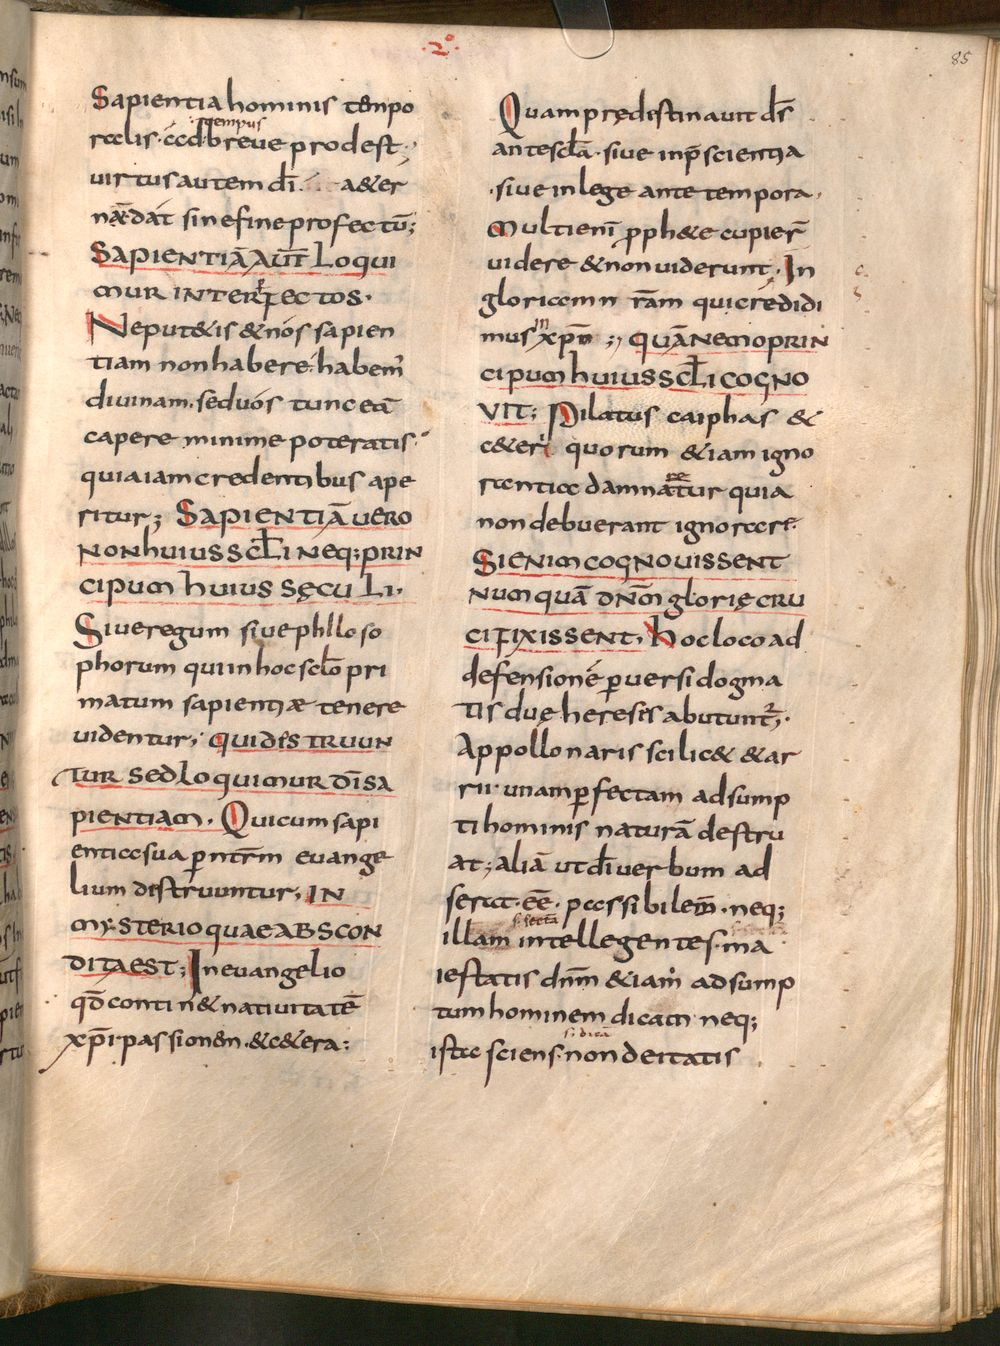 .2°
85
Sapientia hominis tempo
tempus
ralis· ad breue prodest·,
uirtus autem dī. a&er
næ dat sine fine profectū;
SAPIENTIĀ AUT̄ LOQUI
MUR INTER PFECTOS·
Neput&is & nós sapien
tiam non habere· habem'
diuinam· sed uós tunc eā
capere minime poteratis·
quia iam credentibus ape
ritur; SAPIENTIĀ UERO
NON HUIUS SCL̄I NEQ; PRIN
CIPUM HUIUS SĘCULI·
Siue regum siue phylloso
phorum qui in hoc sclō pri
matum sapientiæ tenere
uidentur; QUI DESTRUUN
TUR SED LOQUIMUR DĪ SA
PIENTIAM· Qui cum sapi
entia sua p nr̄m euange
lium destruuntur, IN
MYSTERIO QUAE ABSCON
DITA EST; In euangelio
qd̄ contin& natiuitatē
xp̄i· passionem· &c&era:
Quam predestinauit d̄s
ante scl̄a· siue in p̄scientia
·siue in lege ante tempora·
Multi eni̅ pph&e cupier̄
uidere & non uiderunt· In
gloriam n r̄am qui credidi
mus in xp̄o ;, QUĀ NEMO PRIN
CIPUM HUIUS SCL̄I COGNO
VIT; Pilatus caiphas &
c&eri quorum &iam igno
rantia damnatur quia
non debuerant ignorare·
SI ENIM COGNOUISSENT
NUMQUĀ DN̄M GLORIĘ CRU
CIFIXISSENT· Hoc loco ad
defensionē puersi dogma
tis duę heresis abutunt²,·
Appollonaris scilic& & ar
rii· unam pfectam adsump
ti hominis naturā destru
at; aliā ut dī uerbum ad
serat· ēē· passibilem· neq;
si secta
illam intellegentes· ma
iestatis dn̄m &iam adsump
tum hominem dicam neq;
si dicā
ista sciens· non deitatis